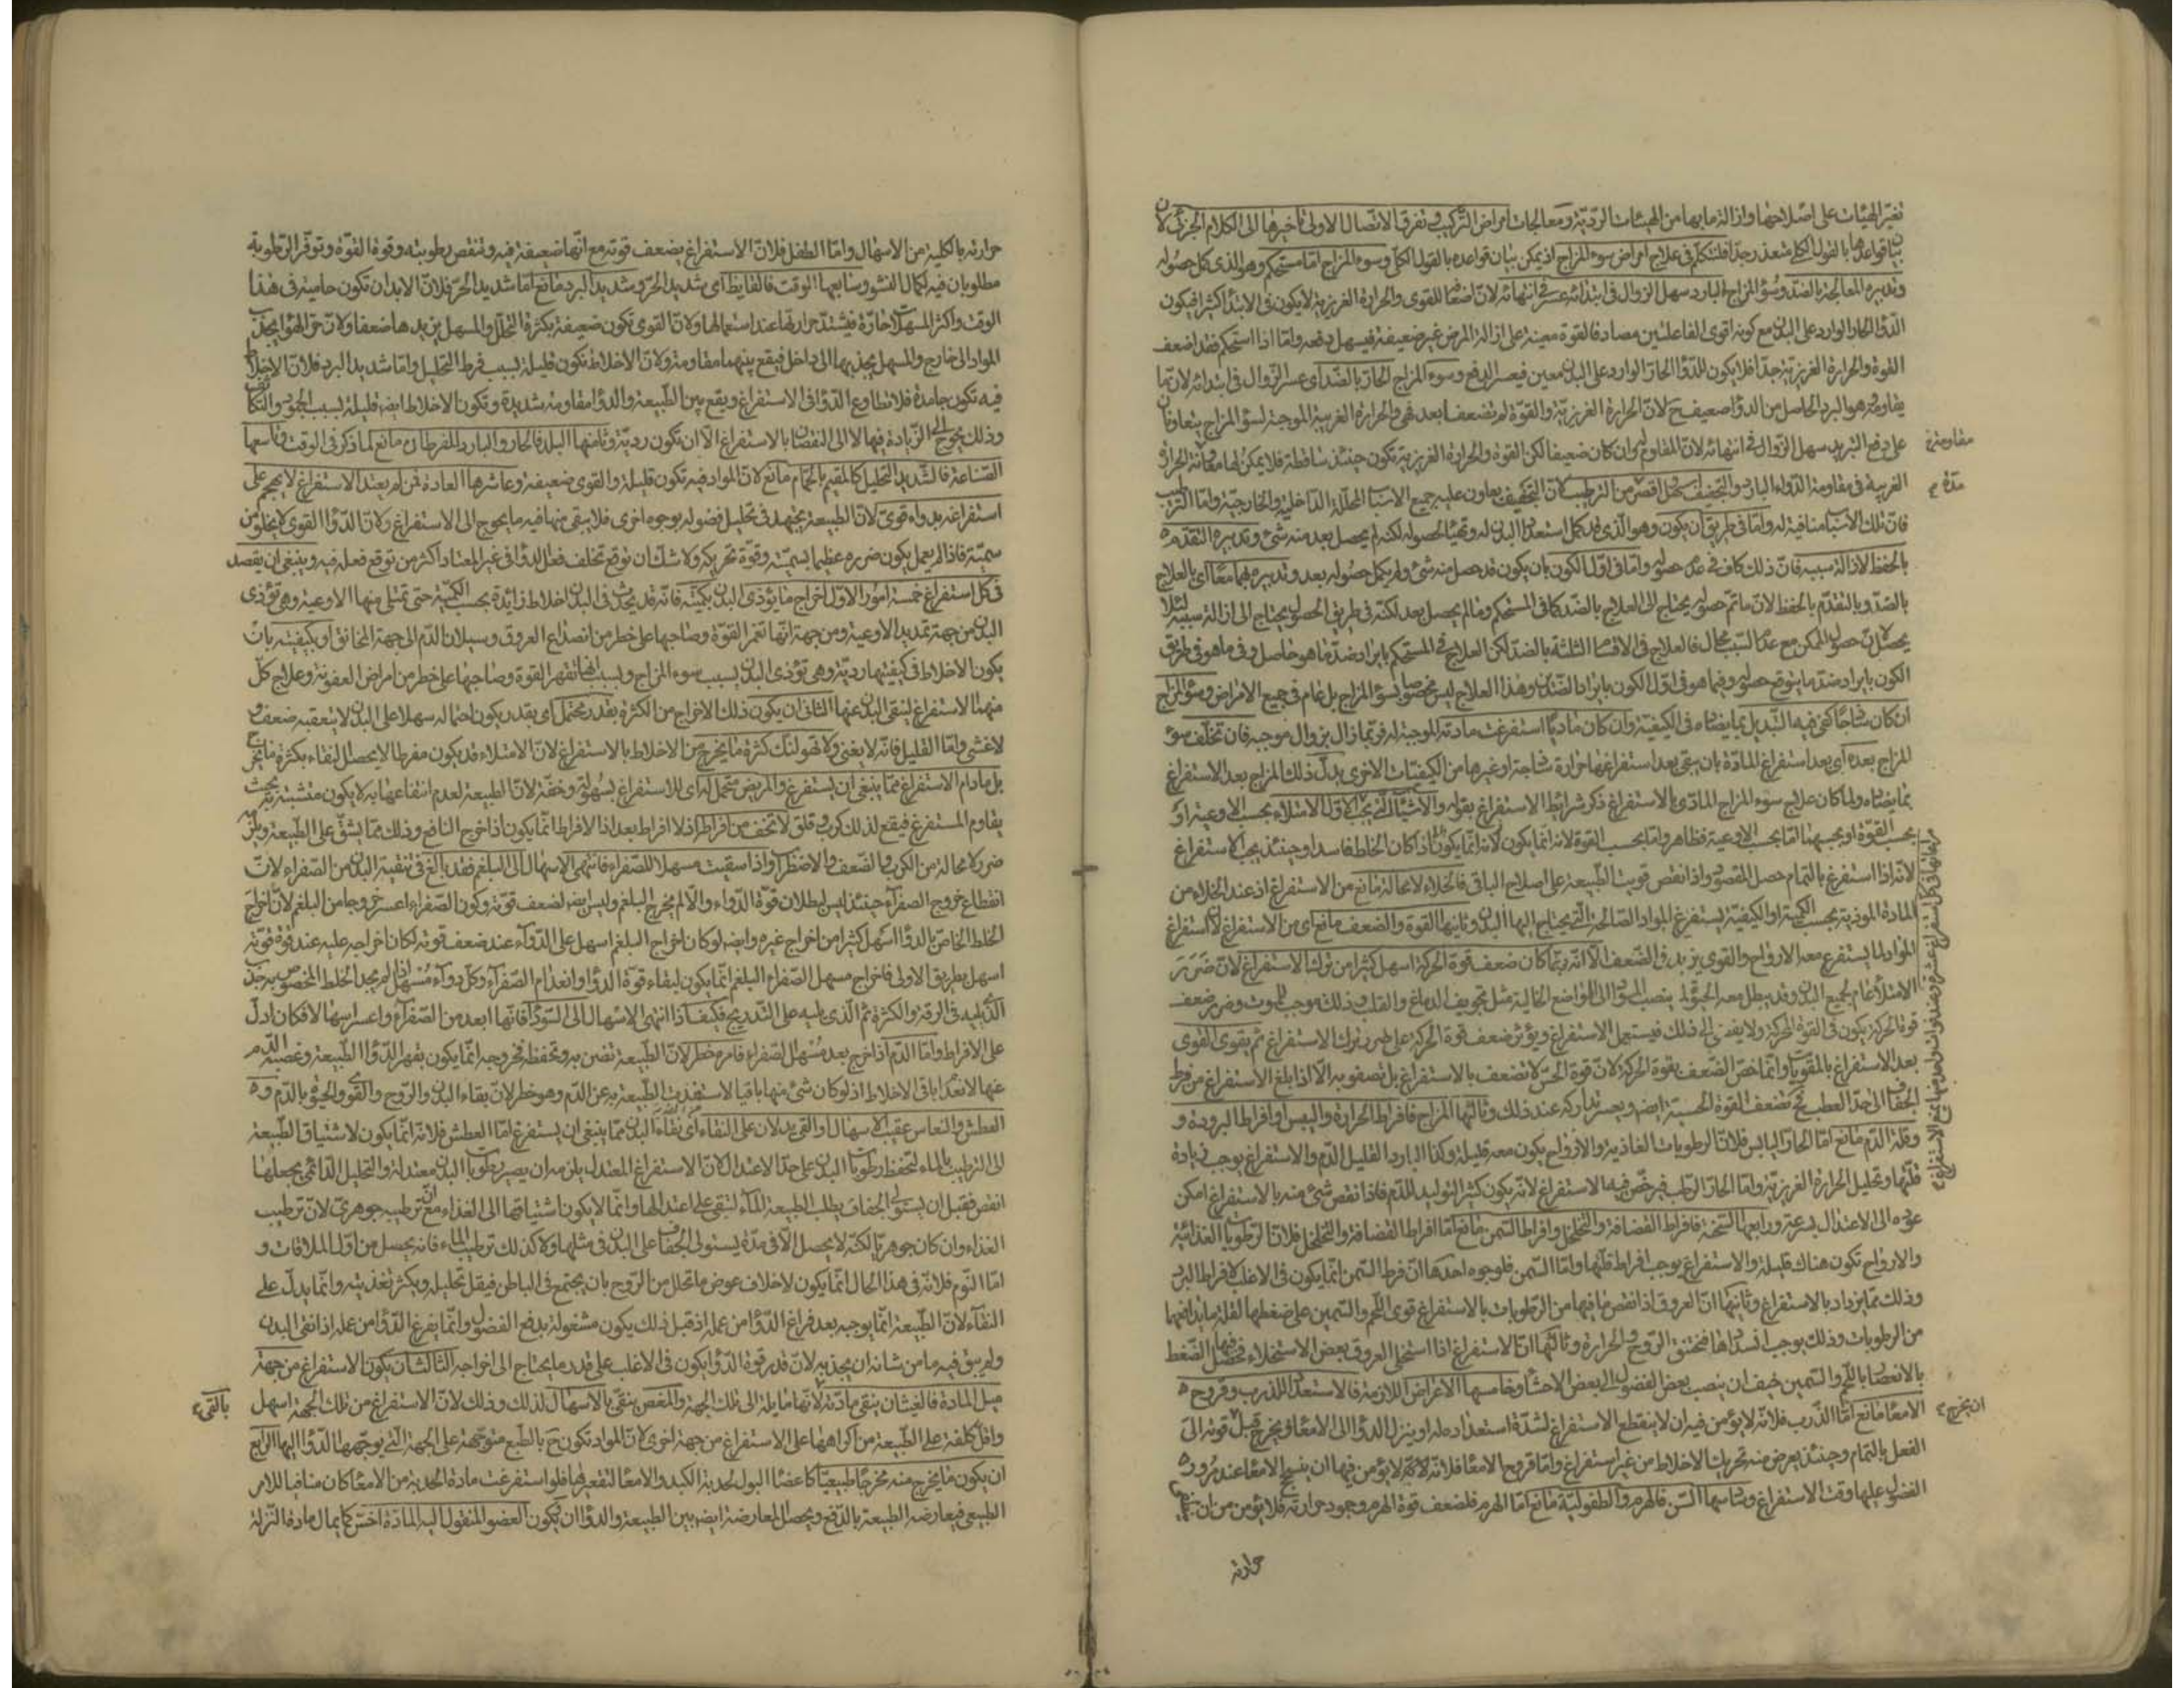 تغيّر الهيئات على اصلاحها وازالة ما بها من الهيئات الرديّة ومعالجات امراض التركيب وتفرق الاتصال الاولى تأخيرها الى الكلام الجزئى لان
بيان قواعدها بالقول الكلى متعذر جدا فلنتكلم فى علاج امراض سوء المزاج اذ يمكن بيان قواعده بالقول الكلى وسوء المزاج اما مستحكم وهو الذى كمل حصوله
وتدبيره المعالجة بالضد وسوء المزاج البارد سهل الزوال فى ابتدائه عسر فى انتهائه لان اضعافا للقوى والحرارة الغريزية لا يكون فى الابتداء كثيرا فيكون
الدواء الحار الوارد على البدن مع كونه اقوى الفاعلتين مصادفا لقوة معينة على ازالة المرض غير ضعيفة فيسهل دفعه واما اذا استحكم فقد اضعف
القوة والحرارة الغريزية جدا فلا يكون للدواء الحار الوارد على البدن معين فيعسر الدفع وسوء المزاج الحار بالضد اى عسر الزوال فى ابتدائه لان ما
يقاومه وهو البرد الحاصل من الدواء ضعيف ح لان الحرارة الغريزية والقوة لم تضعفا بعد فهى والحرارة الغريبة الموجبة لسوء المزاج يتعاونان
على دفع التبريد سهل الزوال فى انتهائه لان المقاوم له وان كان ضعيفا لكن القوة والحرارة الغريزية تكون حينئذ ساقطة فلا يمكن لها معاونة الحرارة
الغريبة فى مقاومة الدواء البارد والتجفيف اسهل اقصر من الترطيب لان التجفيف يعاون عليه جميع الاسباب المحللة الداخلية والخارجية واما الترطيب
فان تلك الاسباب منافية له واما فى طريق ان يكون وهو الذى قد كمل استعداد البدن له وتهيأ لحصوله لكنه لم يحصل بعد منه شئ وتدبيره التقدم
بالحفظ لازالة سببه فان ذلك كاف فى عدم حصوله واما فى اول الكون بان يكون قد حصل منه شئ ولم يكمل حصوله بعد وتدبيره بهما معا اى بالعلاج
بالضد وبالتقدم بالحفظ لان ما تم حصوله يحتاج الى العلاج بالضد كما فى المستحكم وما لم يحصل بعد لكنه فى طريق الحصول يحتاج الى ازالة سببه لئلا
يحصل لان حصول الممكن مع عدم السبب محال فالعلاج فى الاقسام الثلثة بالضد لكن العلاج فى المستحكم بايراد ضد ما هو حاصل وفى ما هو فى طريق
الكون بايراد ضد ما يتوقع حصوله وفيما هو فى اول الكون بايراد الضدين وهذا العلاج ليس مخصوصا بسوء المزاج بل عام فى جميع الامراض وسوء المزاج
ان كان ساذجا كفى فيه التبديل بما يضاده فى الكيفية وان كان ماديا استفرغت مادته الموجبة له فربما زال بزوال موجبه فان تخلف سوء
المزاج بعده اى بعد استفراغ المادة بان يبقى بعد استفراغها حرارة ساذجة او غيرها من الكيفيات الاخرى بدل ذلك المزاج بعد الاستفراغ
بما يضاده ولما كان علاج سوء المزاج المادى بالاستفراغ ذكر شرائط الاستفراغ بقوله والاشياء التى يجب الاول الامتلاء بحسب الاوعية او
بحسب القوة او بحسبهما اما بحسب الاوعية فظاهر واما بحسب القوة لانه انما يكون لانه انما يكون اذا كان الخلط فاسدا وحينئذ يجب الاستفراغ
لانه اذا استفرغ بالتمام حصل المقصود واذا نقص قويت الطبيعة على اصلاح الباقى فالخلاء لا محالة مانع من الاستفراغ اذ عند الخلاء من
المادة الموذية بحسب الكمية او الكيفية يستفرغ المواد الصالحة التى يحتاج اليها البدن وثانيها القوة والضعف مانع اى من الاستفراغ لان استفراغ
المواد لما يستفرغ معه الارواح والقوى يزيد فى الضعف الا انه ربما كان ضعف قوة الحركة اسهل كثيرا من ترك الاستفراغ لان ضرر
الامتلاء عام لجميع البدن وقد يبطل معه الحيوة لما ينصب المواد الى المواضع الخالية مثل تجويف الدماغ والقلب وذلك موجب للموت وضرر ضعف
قوة الحركة يكون فى القوة المحركة ولا يفضى الى ذلك فيستعمل الاستفراغ ويؤثر ضعف قوة الحركة على ضرر ترك الاستفراغ ثم يقوى القوى
بعد الاستفراغ بالمقويات وانما خص الضعف بقوة الحركة لان قوة الحس لا تضعف بالاستفراغ بل تصفو به الا اذا بلغ الاستفراغ من فرط
الجفاف الى حد العطب ح تضعف القوة الحسية ايضا ويعسر تداركه عند ذلك وثالثها المزاج فافراط الحرارة واليبس او افراط البرودة و
وقلة الدم مانع اما الحار اليابس فلان الرطوبات الغاذية والارواح يكون معه قليلة وكذا البارد القليل الدم والاستفراغ يوجب زيادة
قلتها وتحليل الحرارة الغريزية واما الحار الرطب فيرخص فيه الاستفراغ لانه يكون كثير التوليد للدم فاذا نقص شئ منه بالاستفراغ امكن
عوده الى الاعتدال بسرعة ورابعها السحنة فافراط القضافة والتخلخل وافراط السمن مانع اما افراط القضافة والتخلخل فلان الرطوبات الغذائية
والارواح تكون هناك قليلة والاستفراغ يوجب افراط قلتها واما السمن فلوجوه احدها ان فرط السمن انما يكون فى الاغلب لافراط البرد
وذلك مما يزداد بالاستفراغ وثانيها ان العروق اذا نقص ما فيها من الرطوبات بالاستفراغ قوى اللحم والسمين على ضغطها لقلة ما يدافعها
من الرطوبات وذلك يوجب انسدادها فيختنق الروح والحرارة وثالثها ان الاستفراغ اذا استخلى العروق بعض الاستخلاء فحصل فيها الضغط
بالانعصار باللحم والسمين خيف ان ينصب بعض الفضول الى بعض الاحشاء وخامسها الاعراض اللازمة فالاستعداد للذرب وقروح
الامعاء مانع اما الذرب فلانه لا يؤمن فيه ان لا ينقطع الاستفراغ لشدة استعداده له او ينزل الدواء الى الامعاء ويخرج قبل قوته الى
الفعل بالتمام وحينئذ يعرض منه تحريك الاخلاط من غير استفراغ واما قروح الامعاء فلانه لا يؤمن فيها ان ينسحج الامعاء عند مرور
الفضول عليها وقت الاستفراغ وسادسها السن فالهرم والطفولية مانع اما الهرم فلضعف قوة الهرم وجمود حرارته فلا يؤمن من ان
حرارته
مقاومة
مدة
ان يخرج
حرارته بالكلية من الاسهال واما الطفل فلان الاستفراغ يضعف قوته مع انها ضعيفة فيه وتنقص رطوبته وقوة القوة وتوفر الرطوبة
مطلوبان فيه لكمال النشو وسابعها الوقت فالقايظ اى شديد الحر وشديد البرد مانع اما شديد الحر فلان الابدان تكون حامية فى هذا
الوقت واكثر المسهلات حارة فيشتد حرارتها عند استعمالها ولان القوى تكون ضعيفة بكثرة التحلل والمسهل يزيدها ضعفا ولان حر الهواء يجذب
المواد الى خارج والمسهل يجذبها الى داخل فيقع بينهما مقاومة ولان الاخلاط تكون قليلة بسبب فرط التحليل واما شديد البرد فلان الاخلاط
فيه تكون جامدة فلا تطاوع الدواء فى الاستفراغ ويقع بين الطبيعة والدواء مقاومة شديدة وتكون الاخلاط ايضا قليلة بسبب الجمود والتكاثف
وذلك يحوج الى الزيادة فيها لا الى النقصان بالاستفراغ الا ان تكون ردية وثامنها البلد فالحار والبارد المفرطان مانع لما ذكر فى الوقت وتاسعها
الصناعة فالشديد التحليل كالمقيم بالحمام مانع لان المواد فيه تكون قليلة والقوى ضعيفة وعاشرها العادة فمن لم يعتد الاستفراغ لا يهجم على
استفراغه بدواء قوى لان الطبيعة يجتهد فى تحليل فضوله بوجوه اخرى فلا يبقى منها فيه ما يحوج الى الاستفراغ ولان الدواء القوى لا يخلو من
سمية فاذا لم يعمل يكون ضرره عظيما بسميته وقوة تحريكه ولا شك ان توقع تخلف فعل الدواء فى غير المعتاد اكثر من توقع فعله فيه وينبغى ان يقصد
فى كل استفراغ خمسة امور الاول اخراج ما يؤذى البدن بكميته فانه قد يحدث فى البدن اخلاط زائدة بحسب الكمية حتى تمتلى منها الاوعية وهى تؤذى
البدن من جهة تمديد الاوعية ومن جهة انها تغمر القوة وصاحبها على خطر من انصداع العروق وسيلان الدم الى جهة المخانق او بكيفيته بان
يكون الاخلاط فى كيفيتها ردية وهى تؤذى البدن بسبب سوء المزاج وبسبب انها تقهر القوة وصاحبها على خطر من امراض العفونة وعلاج كل
منهما الاستفراغ لينقى البدن عنها الثانى ان يكون ذلك الاخراج من الكثرة بقدر محتمل اى بقدر يكون احتماله سهلا على البدن لا يتعقبه ضعف و
لا غشى واما القليل فانه لا يغنى ولا تهولنك كثرة ما يخرج من الاخلاط بالاستفراغ لان الامتلاء قد يكون مفرطا لا يحصل النقاء بكثرة ما يخرج
بل ما دام الاستفراغ مما ينبغى ان يستفرغ والمريض محتمل له اى للاستفراغ بسهولة وخفة لان الطبيعة لعدم انتفاعها به لا يكون متشبثة به بحيث
يقاوم المستفرغ فيقع لذلك كرب وقلق لا تخف من افراط اذ لا افراط بعد اذ الافراط انما يكون اذا خرج النافع وذلك مما يشق على الطبيعة ويلزمه
ضرر لا محالة من الكرب والضعف والاضطراب واذا سقيت مسهلا للصفراء فانتهى الاسهال الى البلغم فقد بالغ فى تنقية البدن من الصفراء لان
انقطاع خروج الصفراء حينئذ ليس لبطلان قوة الدواء والا لم يخرج البلغم وليس ايضا لضعف قوته وكون الصفراء اعسر خروجا من البلغم لان اخراج
الخلط الخاص بالدواء اسهل كثيرا من اخراج غيره وايضا لو كان اخراج البلغم اسهل على الدواء عند ضعف قوته لكان اخراجه عليه عند قوة قوته
اسهل بطريق الاولى فاخراج مسهل الصفراء البلغم انما يكون لبقاء قوة الدواء وانعدام الصفراء وكل دواء مسهل اذا لم يجد الخلط المخصوص به جذب
الذى يليه فى الرقة والكثرة ثم الذى يليه على التدريج فكيف اذا انتهى الاسهال الى السوداء فانها ابعد من الصفراء واعسر اسهالا فكان ادل
على الافراط واما الدم اذا خرج بعد مسهل الصفراء فامره خطر لان الطبيعة تضن به وتحفظه فخروجه انما يكون بقهر الدواء الطبيعة وغصبه الدم
عنها لانعدام باقى الاخلاط اذ لو كان شئ منها باقيا لاستفدت الطبيعة به عن الدم وهو خطر لان بقاء البدن والروح والقوى والحيوة بالدم و
العطش والنعاس عقيب الاسهال او القى يدلان على النقاء اى نقاء البدن مما ينبغى ان يستفرغ اما العطش فلانه انما يكون لاشتياق الطبيعة
الى الترطيب بالماء لتحفظ رطوبات البدن على حد الاعتدال لان الاستفراغ المعتدل يلزمه ان يصير رطوبات البدن معتدلة والتحليل الدائمى يجعلها
انقص فقبل ان يستولى الجفاف يطلب الطبيعة الماء لتبقى على اعتدالها وانما لا يكون اشتياقها الى الغذاء مع ان ترطيبه جوهرى لان ترطيب
الغذاء وان كان جوهريا لكنه لا يحصل الا فى مدة يستولى الجفاف على البدن فى مثلها ولا كذلك ترطيب الماء فانه يحصل من اول الملاقات و
اما النوم فلانه فى هذا الحال انما يكون لاخلاف عوض ما تحلل من الروح بان يجتمع فى الباطن فيقل تحليله ويكثر تغذيته وانما يدل على
النقاء لان الطبيعة انما يوجبه بعد فراغ الدواء من عمله اذ قبل ذلك يكون مشغولة بدفع الفضول وانما يفرغ الدواء من عمله اذا نقى البدن
ولم يبق فيه ما من شانه ان يجذبه لان قدر قوة الدواء يكون فى الاغلب على قدر ما يحتاج الى اخراجه الثالث ان يكون الاستفراغ من جهة
ميل المادة فالغثيان ينقى مادته لانها مايلة الى تلك الجهة والمغص ينقى بالاسهال لذلك وذلك لان الاستفراغ من تلك الجهة اسهل
واقل كلفة على الطبيعة من اكراهها على الاستفراغ من جهة اخرى لان المواد تكون ح بالطبع متوجهة على الجهة التى يوجهها الدواء اليها الرابع
ان يكون ما يخرج منه مخرجا طبيعيا كاعضاء البول لحدبة الكبد والامعاء لتقعيرها فلو استفرغت مادة الحدبة من الامعاء كان منافيا للامر
الطبيعى فيعارضه الطبيعة بالدفع ويحصل المعارضة ايضا بين الطبيعة والدواء ان يكون العضو المنقول اليه المادة اخس كما يمال مادة النزلة
بالقى